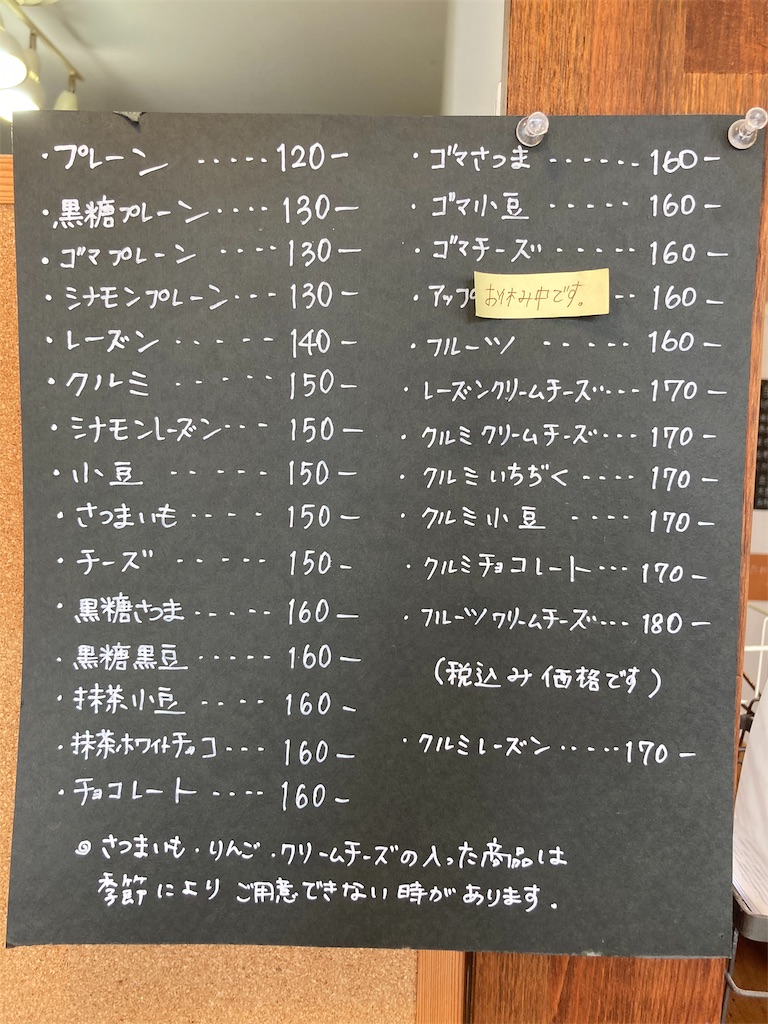 ・プレーン ・・・・・120-
・黒糖プレーン・・・・130-
・ゴマプレーン ・・・・130-
・シナモンプレーン・・・130-
・レーズン ・・・・・140-
・クルミ ・・・・・150-
・シナモンレーズン・・・150-
・小豆 ・・・・・150-
・さつまいも ・・・・150-
・チーズ ・・・・・150-
・黒糖さつま・・・・・160-
・黒糖黒豆・・・・・160-
・抹茶小豆・・・・160-
・抹茶ホワイトチョコ・・・160-
・チョコレート・・・・160-
・ゴマさつま・・・・・・160-
・ゴマ小豆・・・・・160-
・ゴマチーズ・・・・・160-
・アップ お休み中です。・・160-
・フルーツ ・・・・・160-
・レーズンクリームチーズ・・・170-
・クルミクリームチーズ・・・170-
・クルミいちぢく・・・・170-
・クルミ小豆 ・・・・170-
・クルミチョコレート・・・170-
・フルーツクリームチーズ・・・180-
(税込み価格です)
・クルミレーズン・・・・・170-
◎さつまいも・りんご・クリームチーズの入った商品は
季節によりご用意できない時があります.